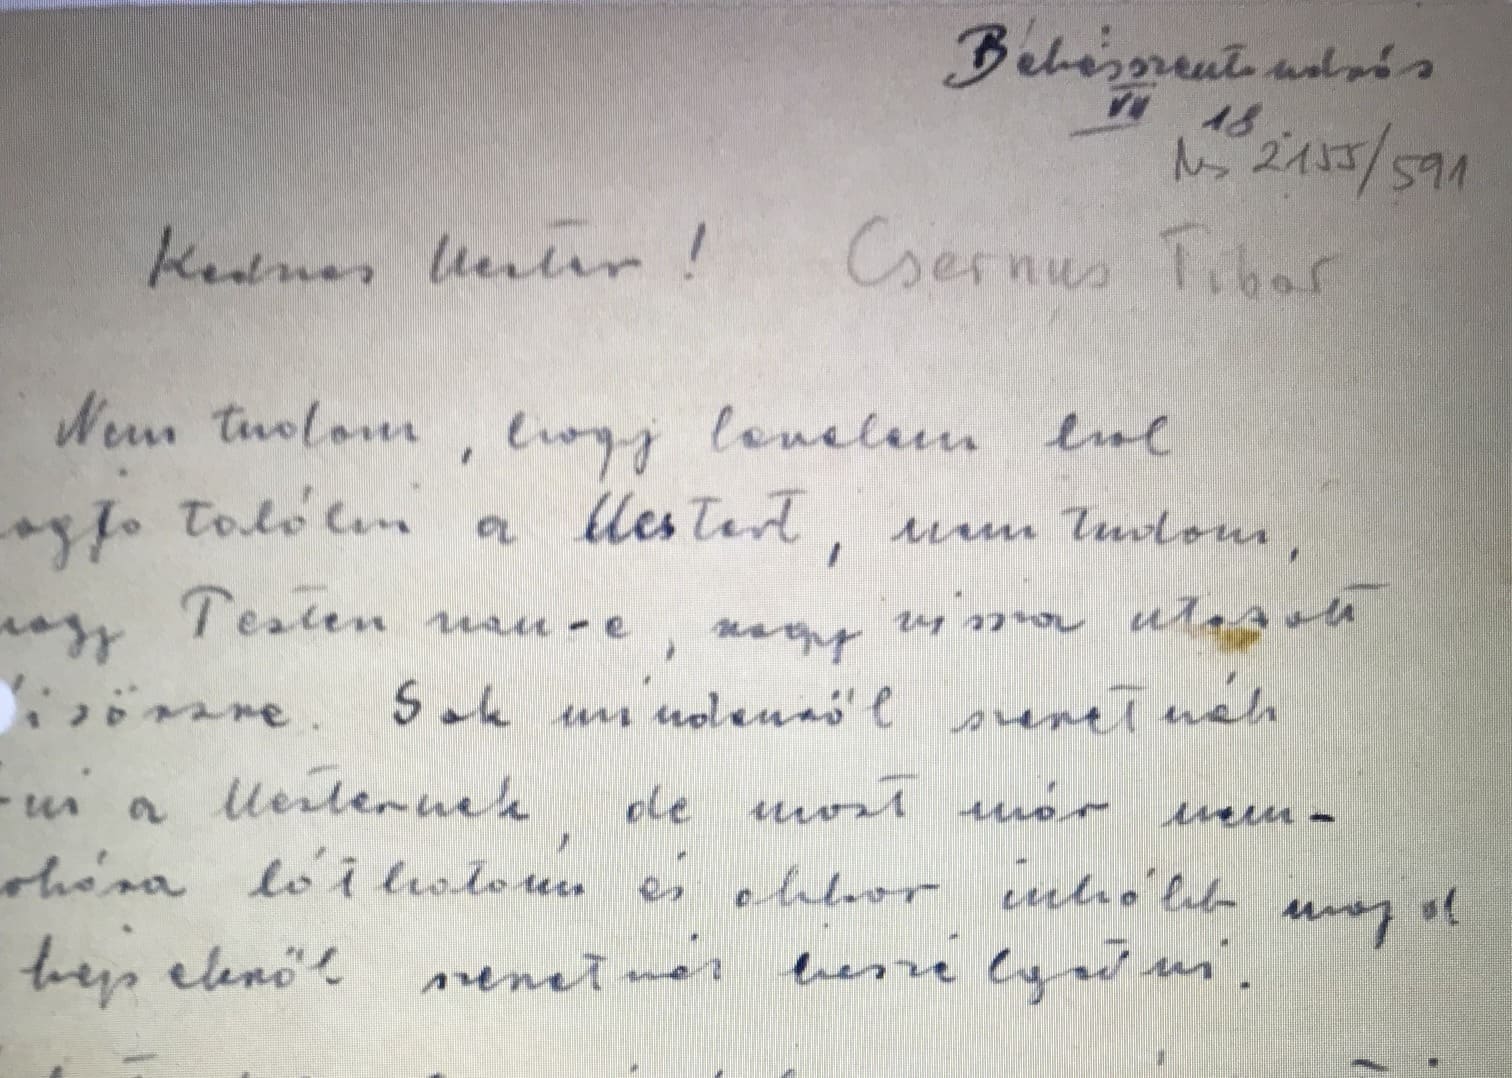 Békésszentandrás
VII 18.
Ms 2155/591
Kedves Mester! Csernus Tibor
Nem tudom, hogy levelem hol
fogja találni a Mestert, nem tudom,
hogy Pesten van-e, vagy vissza utazott
Sak mindenről szeretnék
a Mesternek, de most már nem-
sokára láthatom és akkor inkább majd
képekről szeretnék beszélgetni.